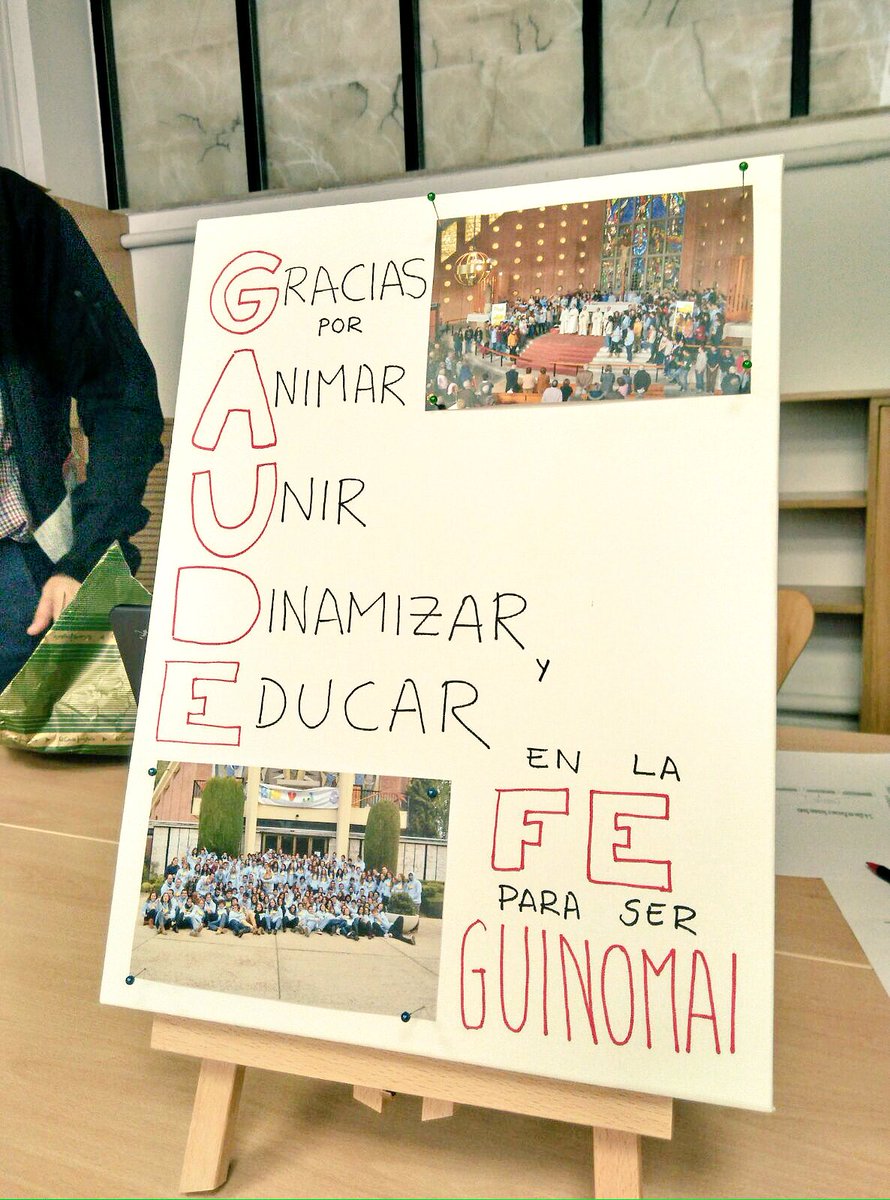 GRACIAS
POR
ANIMAR
UNIR
DINAMIZAR
Y
EDUCAR
EN LA
FE
PARA SER
GUINOMAI